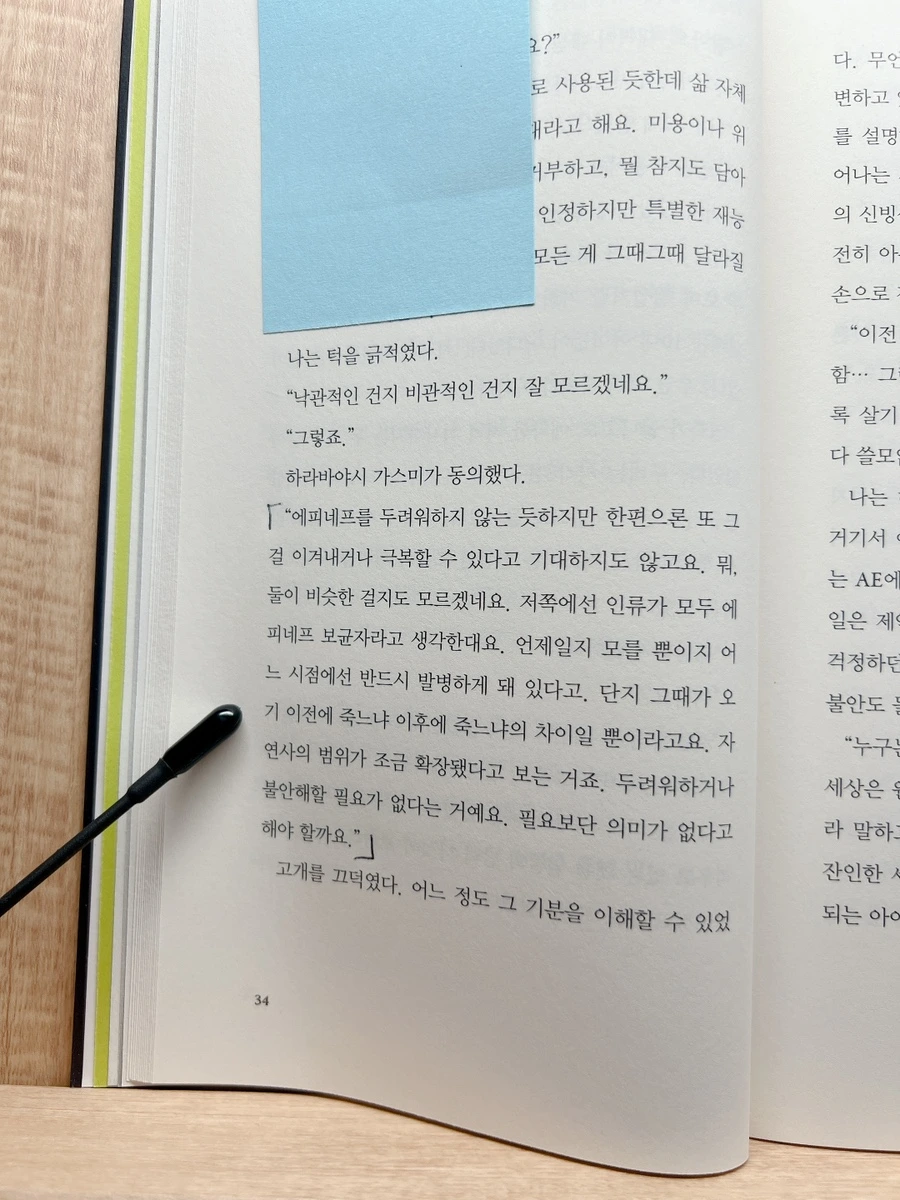 요?”
로 사용된 듯한데 삶 자체
대라고 해요. 미용이나 위
거부하고, 뭘 참지도 담아
인정하지만 특별한 재능
모든 게 그때그때 달라질
나는 턱을 긁적였다.
“낙관적인 건지 비관적인 건지 잘 모르겠네요.”
“그렇죠.”
하라바야시 가스미가 동의했다.
「“에피네프를 두려워하지 않는 듯하지만 한편으론 또 그
걸 이겨내거나 극복할 수 있다고 기대하지도 않고요. 뭐,
둘이 비슷한 걸지도 모르겠네요. 저쪽에선 인류가 모두 에
피네프 보균자라고 생각한대요. 언제일지 모를 뿐이지 어
느 시점에선 반드시 발병하게 돼 있다고. 단지 그때가 오
기 이전에 죽느냐 이후에 죽느냐의 차이일 뿐이라고요. 자
연사의 범위가 조금 확장됐다고 보는 거죠. 두려워하거나
불안해할 필요가 없다는 거예요. 필요보단 의미가 없다고
해야 할까요.”」
고개를 끄덕였다. 어느 정도 그 기분을 이해할 수 있었
34
다. 무언
변하고
를 설명
어나는
의 신빙
전히 아
손으로
“이전
함… 그
록 살기
다 쓸모
나는
거기서
는 AE에
일은 제
걱정하던
불안도
“누구
세상은
라 말하
잔인한
되는 아이